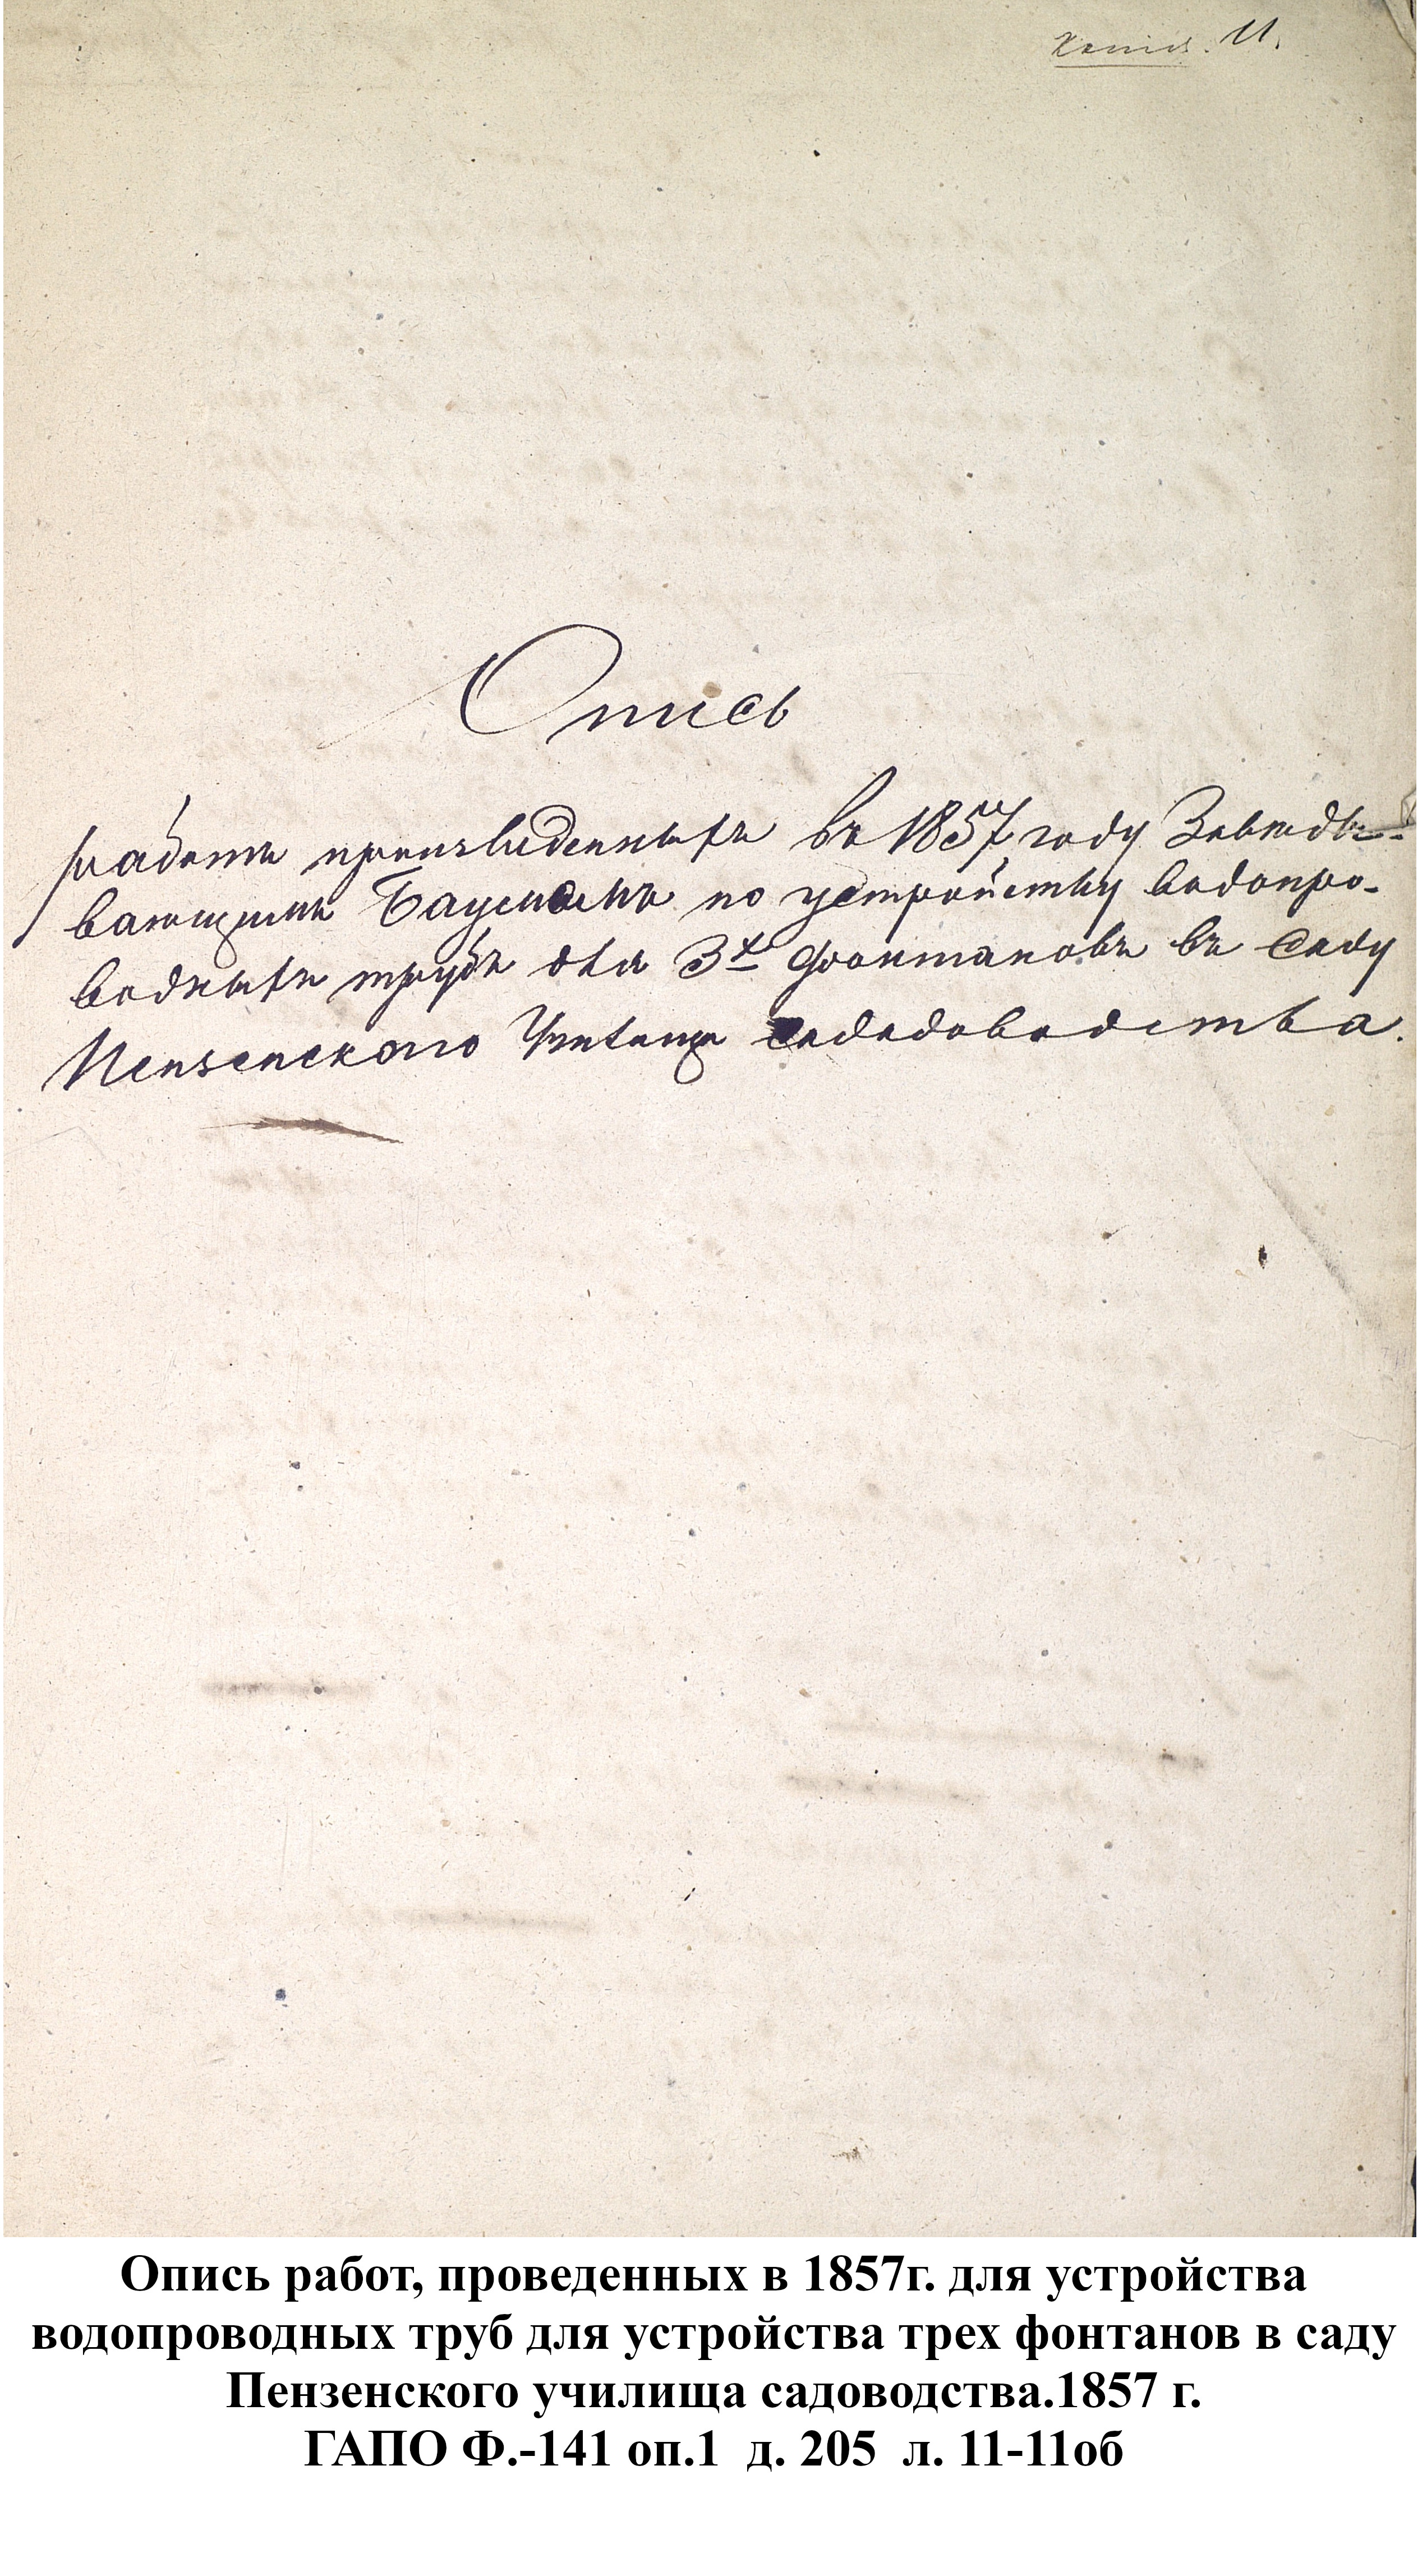 11.
Опись
работъ произведенныхъ въ 1857 году Завѣды-
вающимъ Бауманъ по устройству водопро-
водныхъ трубъ для 3х фонтановъ въ Саду
Пензенского Училища Садоводства.
Опись работ, проведенных в 1857г. для устройства
водопроводных труб для устройства трех фонтанов в саду
Пензенского училища садоводства.1857 г.
ГАПО Ф.-141 оп.1 д. 205 л. 11-11об